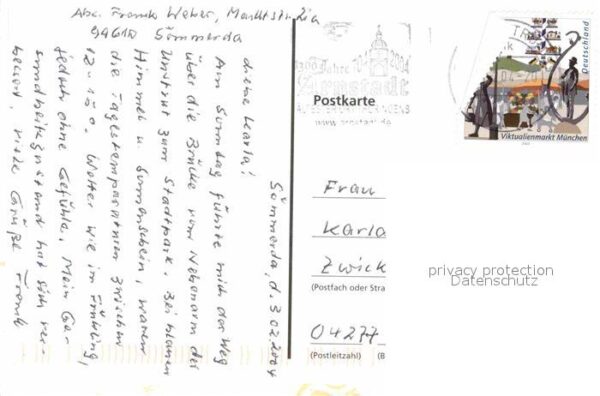 Abs. Frank Weber, Marktstraße
99610 Sömmerda
Sömmerda, d. 3.02.2004
Liebe Karla!
Am Sonntag führte mich der Weg
über die Brücke vom Nebenarm der
Unstrut zum Stadtpark. Bei blauem
Himmel u. Sonnenschein, waren
die Tagestemperaturen zwischen
12 - 15°. Wetter wie im Frühling,
jedoch ohne Gefühle. Mein Ge-
sundheitszustand hat sich ver-
bessert. Viele Grüße Frank
1300 Jahre
704 2004
Arnstadt
ÄLTESTER ORT THÜRINGENS
www.arnstadt.de
Deutschland
Viktualienmarkt München
Postkarte
Frau
Karla
Zwick
(Postfach oder Stra
04277
(Postleitzahl) (B
privacy protection
Datenschutz